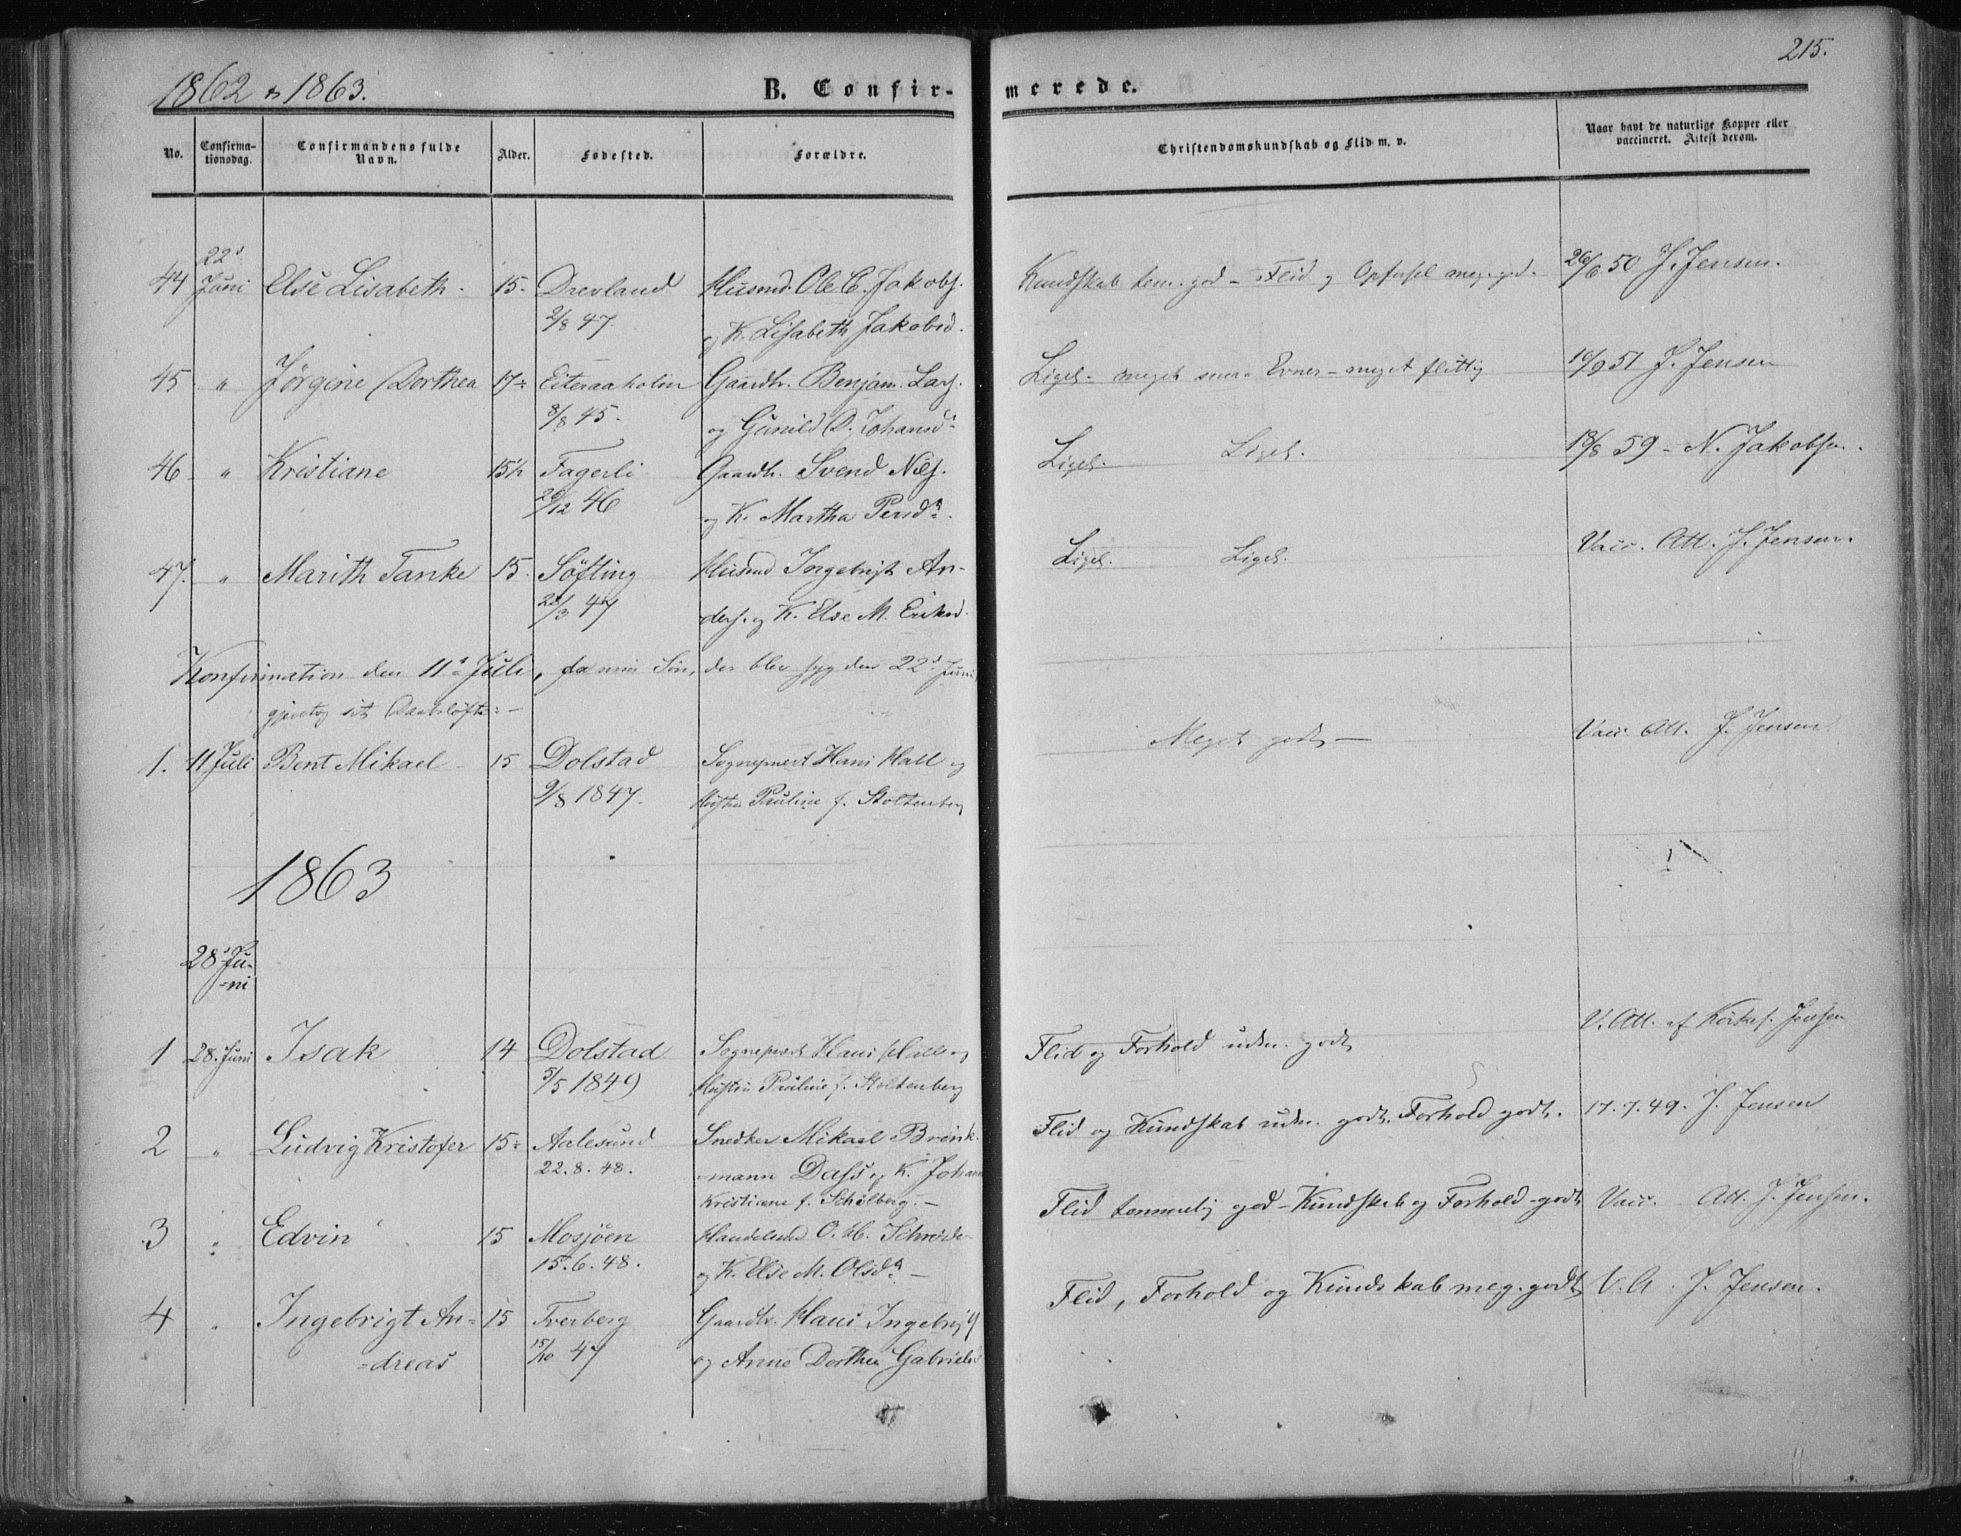 215.
1862 & 1863.
B. Confir-
merede.
No.
Confirma-
tionsdag.
Confirmandens fulde
Navn.
Alder.
Fødested.
Forældre.
Christendomskundskab og Flid m. v.
Naar havt de naturlige Kopper eller
vaccineret. Attest derom.
22d
44 Juni Else Lisabeth. 15- Drevland Husmd. Ole C. Jakobs. Kundskab tem. god - Flid og Opførsel meg. god. 26/6 50 J. Jensen.
2/8 47. og K. Lisabeth Jakobsd.
45 " Jørgine Dorthea 17- Eiteraaholm Gaardbr. Benjam. Lars. Ligel- meget smaa Evner - meget flittig 10/9 51 J. Jensen
8/8 45. og Gunild D. Johansd.
46 " Kristiane 15½ Fagerli Gaardbr. Svend Nils. Ligel. Ligel. 18/8 59 - N. Jakobsen.
20/12 46 og K. Martha Persd.
47. " Marith Tanke 15. Søfting Husmd Ingebrigt An- Ligel. Ligel. Vacc. Att. J. Jensen.
/3 47 ders. og K. Else M. Eriksd.
Konfirmation den 11te Juli, da min Søn, der blev syg den 22d Juni
gjentog sit Daabsløfte: -
1. 11 Juli Bent Mikael 15 Dolstad Sogneprest Hans Hall og Meget godt - Vacc. Att. J. Jensen
9/8 1847. Hustru Pauline f. Stoltenberg
1863
28 Ju-
-ni
1 28. Juni Isak 14 Dolstad Sogneprest Hans Hall og Flid og Forhold udm. godt V. Att. af Kirkes. Jensen
5/5 1849 Hustru Pauline f. Stoltenberg
2 " Ludvig Kristofer 15- Aalesund Snedker Mikael Brink- Flid og Kundskab udm. godt. Forhold godt. 17.7.49. J. Jensen
22.8.48. -mann Dass og K. Johan
Kristiane f. Schølberg. -
3 " Edvin 15 Mosjøen Handelsmd O. H. Schrøde- Flid temmelig god - Kundskab og Forhold godt Vacc. Att. J. Jensen.
15.6.48. og K. Else M. Olsd. -
4 " Ingebrigt An- 15 Tverberg Gaardbr. Hans Ingebrigt Flid, Forhold og Kundskab meg. godt V. A. J. Jensen.
=dreas 15/10 47 og Anne Dorthea Gabriels